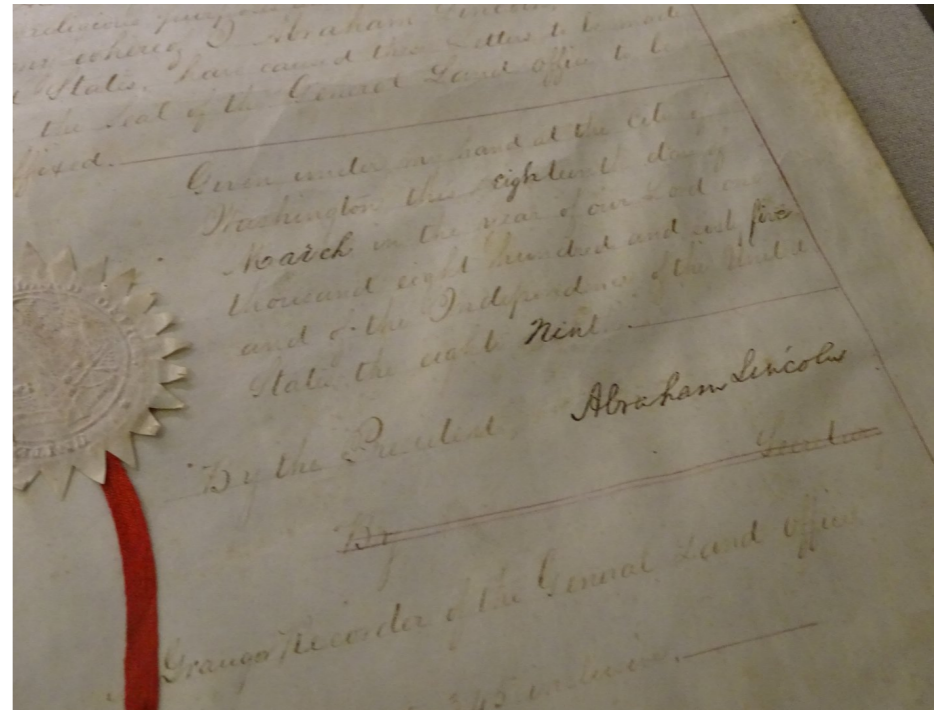 religious purposes
whereof I Abraham Lincoln
States, have caused these Letters to be made
the Seal of the General Land office to be
ffixed.
Given under my hand at the City of
Washington this eighteenth day of
March in the year of our Lord one
thousand eight hundred and sixt five
and of the Independence of the United
States the eight Nint
By the President Abraham Lincoln
Secretar
By
Granger Recorder of the General Land office
345 inclusive.